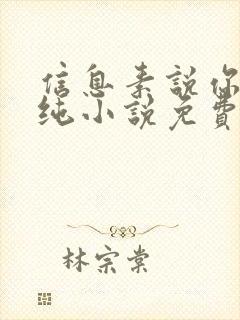 信息素說你
純小說免費
林宗棠